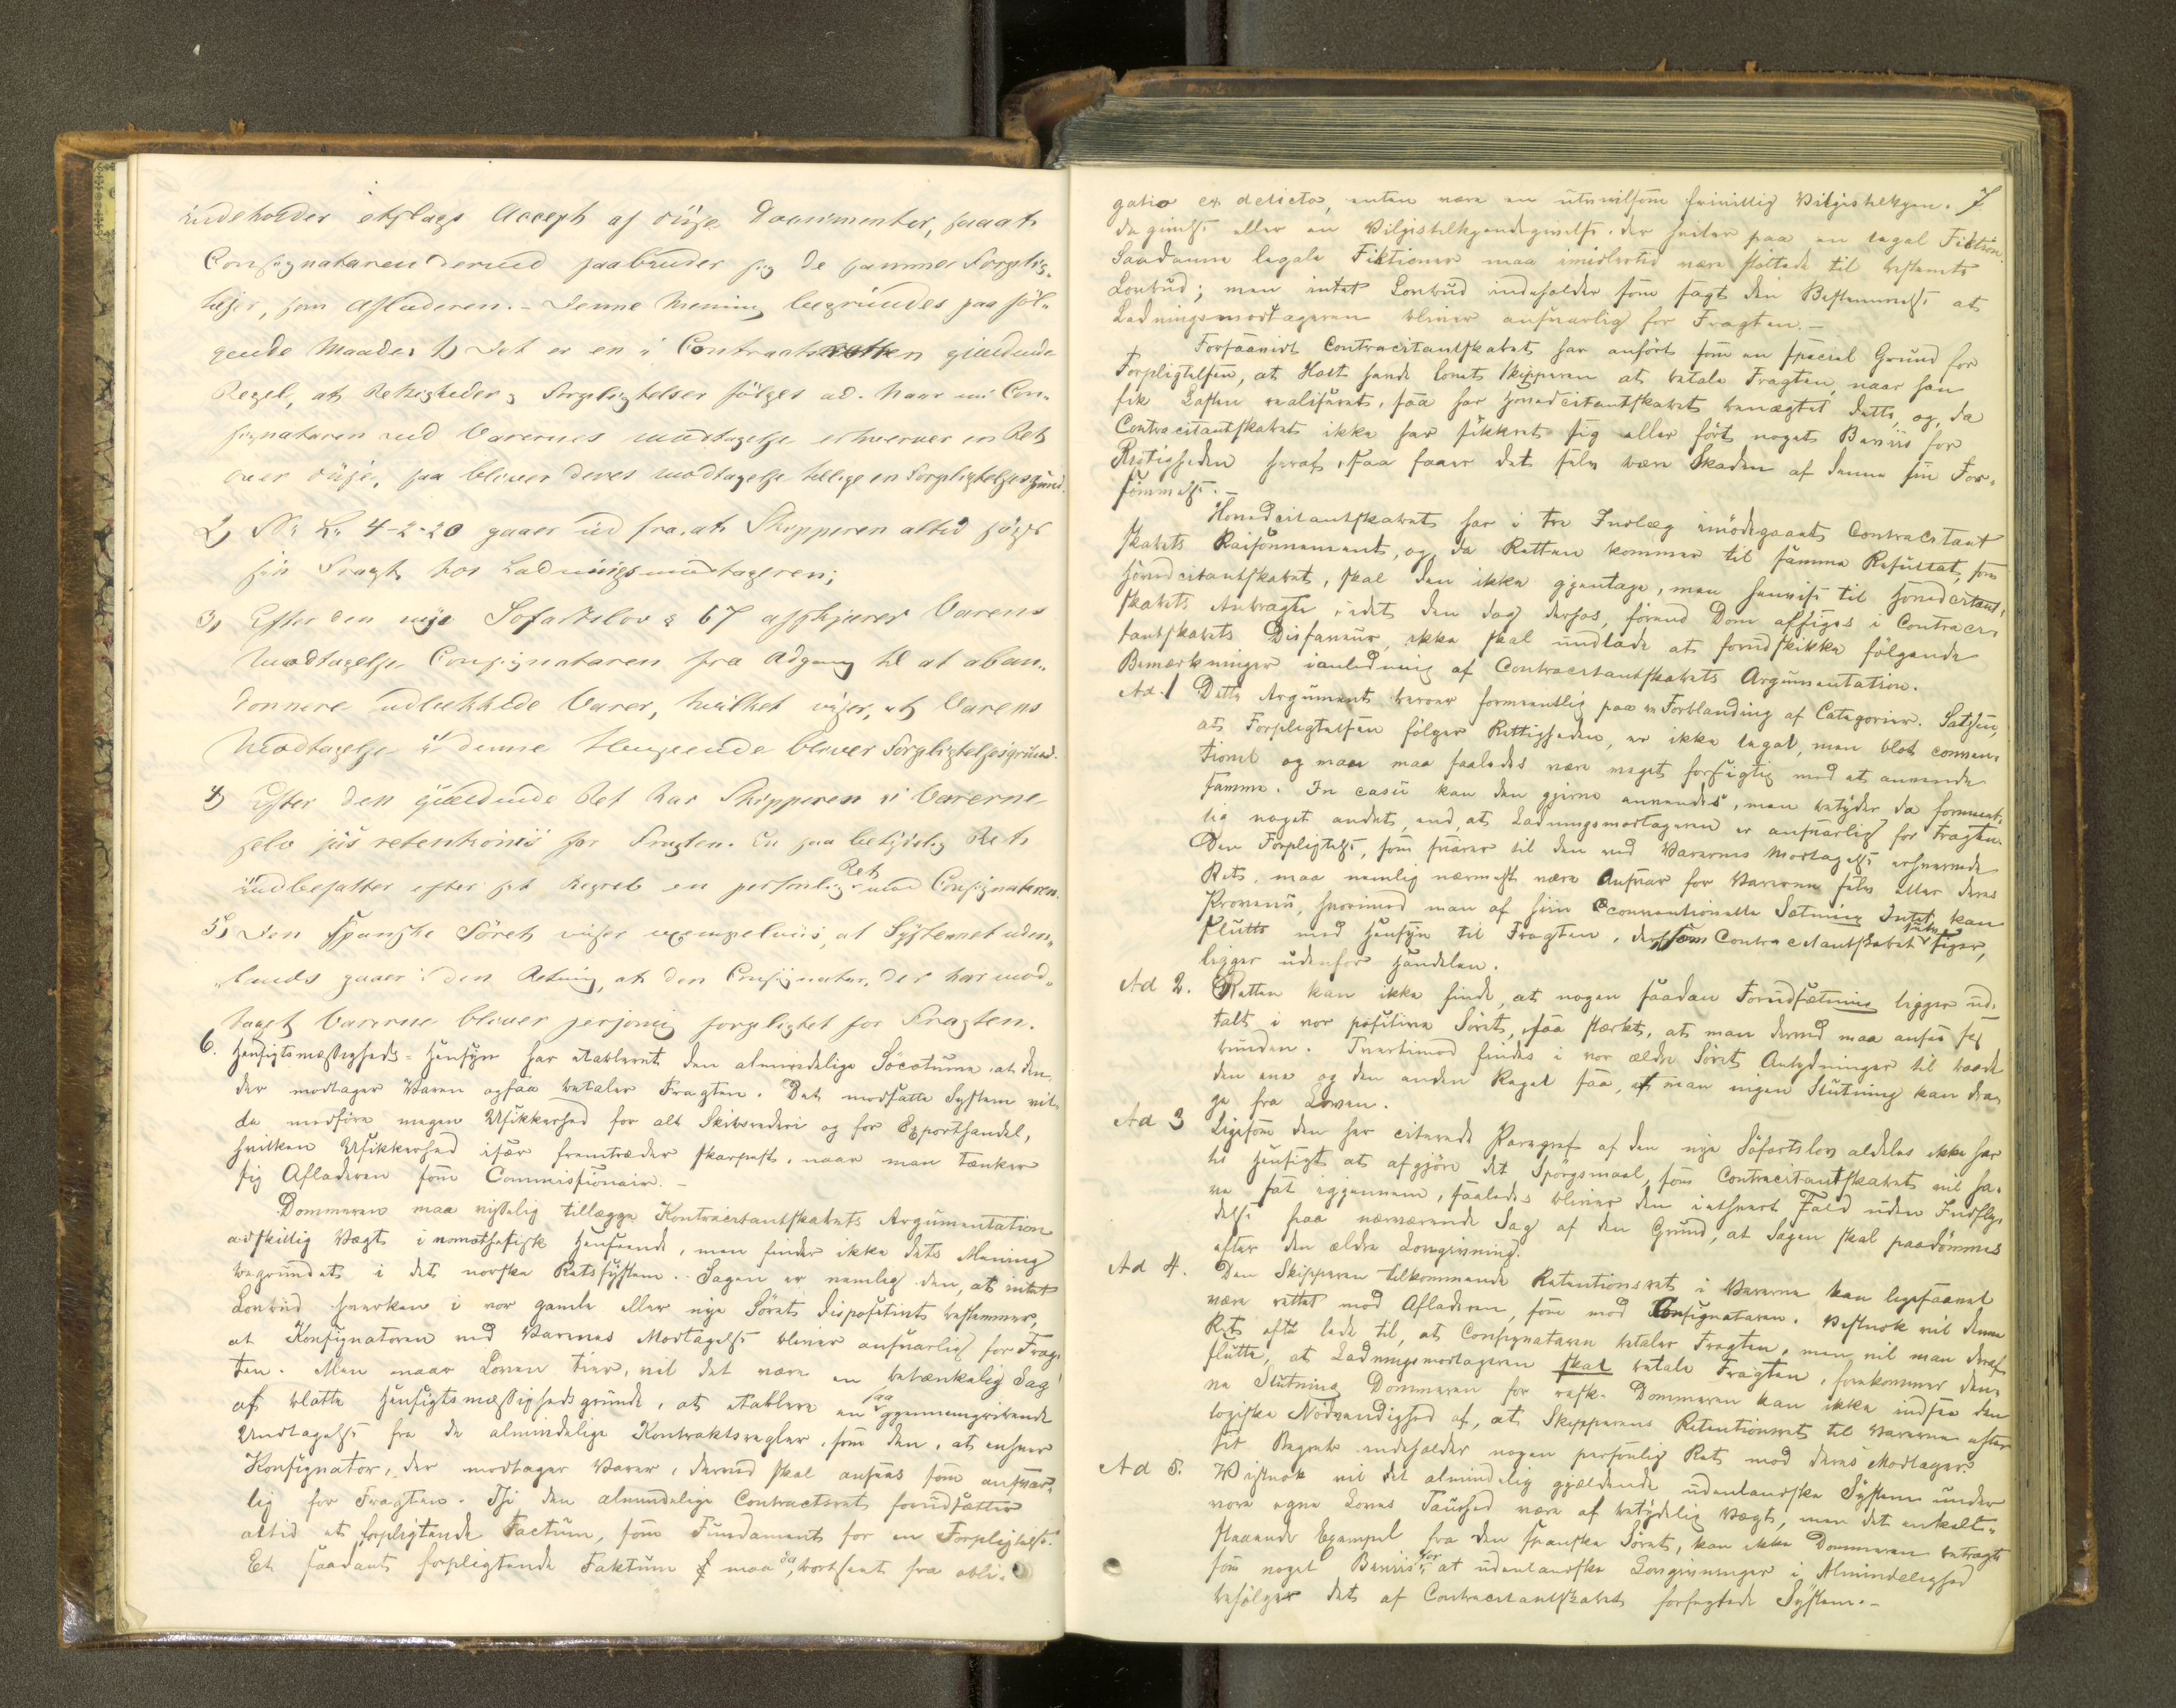 indeholder etslags Accept af disse Documenter, saaat
Consignataren derved paabinder sig de samme Forplig-
telser, som Afladeren. – Denne Mening begrundes paa føl-
gende Maade: 1) Det er en i Contractsretten gjældende
Regel, at Rettigheder & Forpligtelser følges ad. Naar nu Con-
signataren ved Varernes modtagelse erhverver en Ret
over disse, saa bliver deres modtagelse tillige en Forpligtelsesgrund.
2) N. L. 4-2-20 gaaer ud fra, at Skipperen altid søger
sin Fragt hos Ladningsmodtageren;
3, Efter den nye Sofartslov § 67 afskjærer Varens
Modtagelse Consignataren fra Adgang til at aban-
donnere udlækkede Varer, hvilket viser, at Varens
Modtagelse i denne Henseende bliver Forpligtelsesgrund.
4) Efter den gjældende Ret har Skipperen i Varerne
selv jus retentionis for Fragten. En saa betydelig Ret
indbefatter efter sit Begreb en personlig Ret mod Consignataren.
5) Den Spanske Søret viser exempelviis, at Systemet uden-
lands gaaer i den Retning, at den Consignatar, der har mod-
taget Varerne bliver personlig forpligtet for Fragten.
6. Hensigtsmæssigheds-Hensyn har etableret den almindelige Söcoutume at den,
der modtager Varen ogsaa betaler Fragten. Det modsatte System vil-
de medføre megen Usikkerhed for alt Skibsrederi og for Exporthandel,
hvilken Usikkerhed især fremtræder skarpest, naar man tænker
sig Afladeren som Commissionair. –
Dommeren maa visselig tillægge Kontracitantskabets Argumentation
adskillig Vægt i nomothetisk Henseende, men finder ikke dets Mening
begrundet i det norske Retssystem. Sagen er nemlig den, at intet
Lovbud hverken i vor gamle eller nye Søret dispositivt bestemmer,
at Konsignatoren ved Varernes Modtagelse bliver ansvarlig for Frag-
ten. Men naar Loven tier, vil det være en betænkelig Sag
af blotte Hensigtsmæssighedsgrunde, at etablere en saa gjennemgribende
Undtagelse fra de almindelige Kontraktsregler, som den, at enhver
Konsignatar, der modtager Varer, derved skal ansees som ansvar-
lig for Fragten. Thi den almindelige Contractsret forudsætter
altid et forpligtende Factum, som Fundament for en Forpligtelse.
Et saadant forpligtende Faktum maa da, bortseet fra obli-
gatio ex delicto, enten være en utvivlsom frivillig Viljestilkjen- 7
degivelse eller en Viljestilkjendegivelse, der hviler paa en legal Fiktion.
Saadanne legale Fiktioner maa imidlertid være støttede til bestemte
Lovbud; men intet Lovbud indeholder som sagt den Bestemmelse at
Ladningsmodtageren bliver ansvarlig for Fragten. –
Forsaavidt Contracitantskabet har anført som en speciel Grund for
Forpligtelsen, at Holst havde lovet Skipperen at betale Fragten, naar han
fik Lasten realiseret, saa har Hovedcitantskabet benægtet dette, og, da
Contracitantskabet ikke har sikkret sig eller ført noget Beviis for
Rigtigheden heraf, saa faaer det selv bære Skaden af denne sin For-
sømmelse. –
Hovedcitantskabet har i tre Indlæg imødegaaet Contracitant
skabets Raisonnement, og, da Retten kommer til samme Resultat, som
Hovedcitantskabet, skal den ikke gjentage, men henvise til Hovedcitant-
skabets Anbragte, idet den dog derhos, førend Dom afsiges i Contraci-
tantskabets Disfaveur, ikke skal undlade at forudskikke følgende
Bemærkninger i anledning af Contracitantskabets Argumentation.
Ad. 1 Dette Argument beroer formeentlig paa en Forblanding af Categorier. Satsen,
at Forpligtelsen følger Rettigheden, er ikke legal, men blot conven-
tionel og man maa saaledes være meget forsigtig med at anvende
samme. In casu kan den gjerne anvendes, men betyder da forment-
lig noget andet, end, at Ladningsmodtageren er ansvarlig for Fragten.
Den Forpligtelse, som svarer til den ved Varernes Modtagelse erhvervede
Ret, maa nemlig nærmest være Ansvar for Varerne selv eller deres
Provenu, hvorimod man af hiin conventionelle Sætning Intet kan
slutte med Hensyn til Fragten, der, som Contracitantskabet selv siger,
ligger udenfor Handelen.
Ad 2. Retten kan ikke finde, at nogen saadan Forudsætning ligger ud-
talt i vor positive Søret, saa stærkt, at man derved maa ansee sig
bunden. Tvertimod findes i vor ældre Søret Antydninger til baade
den ene og den anden Regel saa, at man ingen Slutning kan dra-
ge fra Loven.
Ad 3 Ligesom den her citerede Paragraf af den nye Søfartslov aldeles ikke har
til Hensigt at afgjøre det Spørgsmaal, som Contracitantskabet vil ha-
ve sat igjennem, saaledes bliver den i ethvert Fald uden Indfly-
delse paa nærværende Sag af den Grund, at Sagen skal paadømmes
efter den ældre Lovgivning.
Ad 4. Den Skipperen tilkommende Retentionsret i Varerne kan ligesaavel
være rettet mod Afladeren, som mod Consignataren. Vistnok vil denne
Ret ofte lede til, at Consignataren betaler Fragten, men vil man deraf
slutte, at Ladningsmodtageren skal betale Fragten, forekommer den-
ne Slutning Dommeren for rask. Dommeren kan ikke indsee den
logiske Nødvendighed af, at Skipperens Retentionsret til Varerne efter
sit Begreb indeholder nogen personlig Ret mod deres Modtager.
Ad 5. Vistnok vil det almindelig gjældende udenlandske System under
vore egne Loves Taushed være af betydelig Vægt, men det enkelt-
staaende Exempel fra den spanske Søret, kan ikke Dommeren betragte
som noget Beviis for, at udenlandske Lovgivninger i Almindelighed
befølger det af Contracitantskabet forfægtede System. –